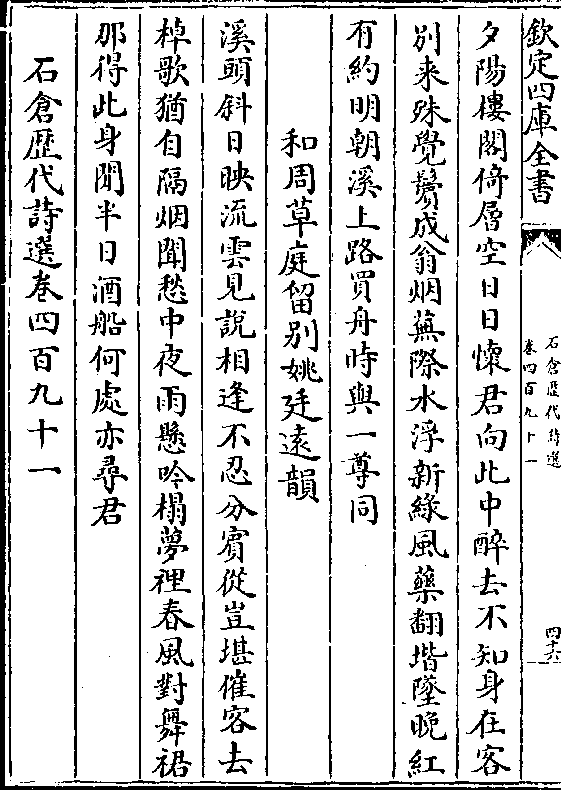 欽定四庫全書
石倉歴代詩選
卷四百九十一
四十六
夕陽樓閣倚層空日日懷君向此中醉去不知身在客
別来殊覺鬢成翁烟蕪際水浮新緑風藥翻堦墜晚紅
有約明朝溪上路買舟時與一尊同
和周草庭留别姚廷逺韻
溪頭斜日映流雲見說相逢不忍分賓從豈堪催客去
棹歌猶自隔烟聞愁中夜雨懸吟榻夢裡春風對舞裙
那得此身閒半日酒船何處亦尋君
石倉歴代詩選卷四百九十一